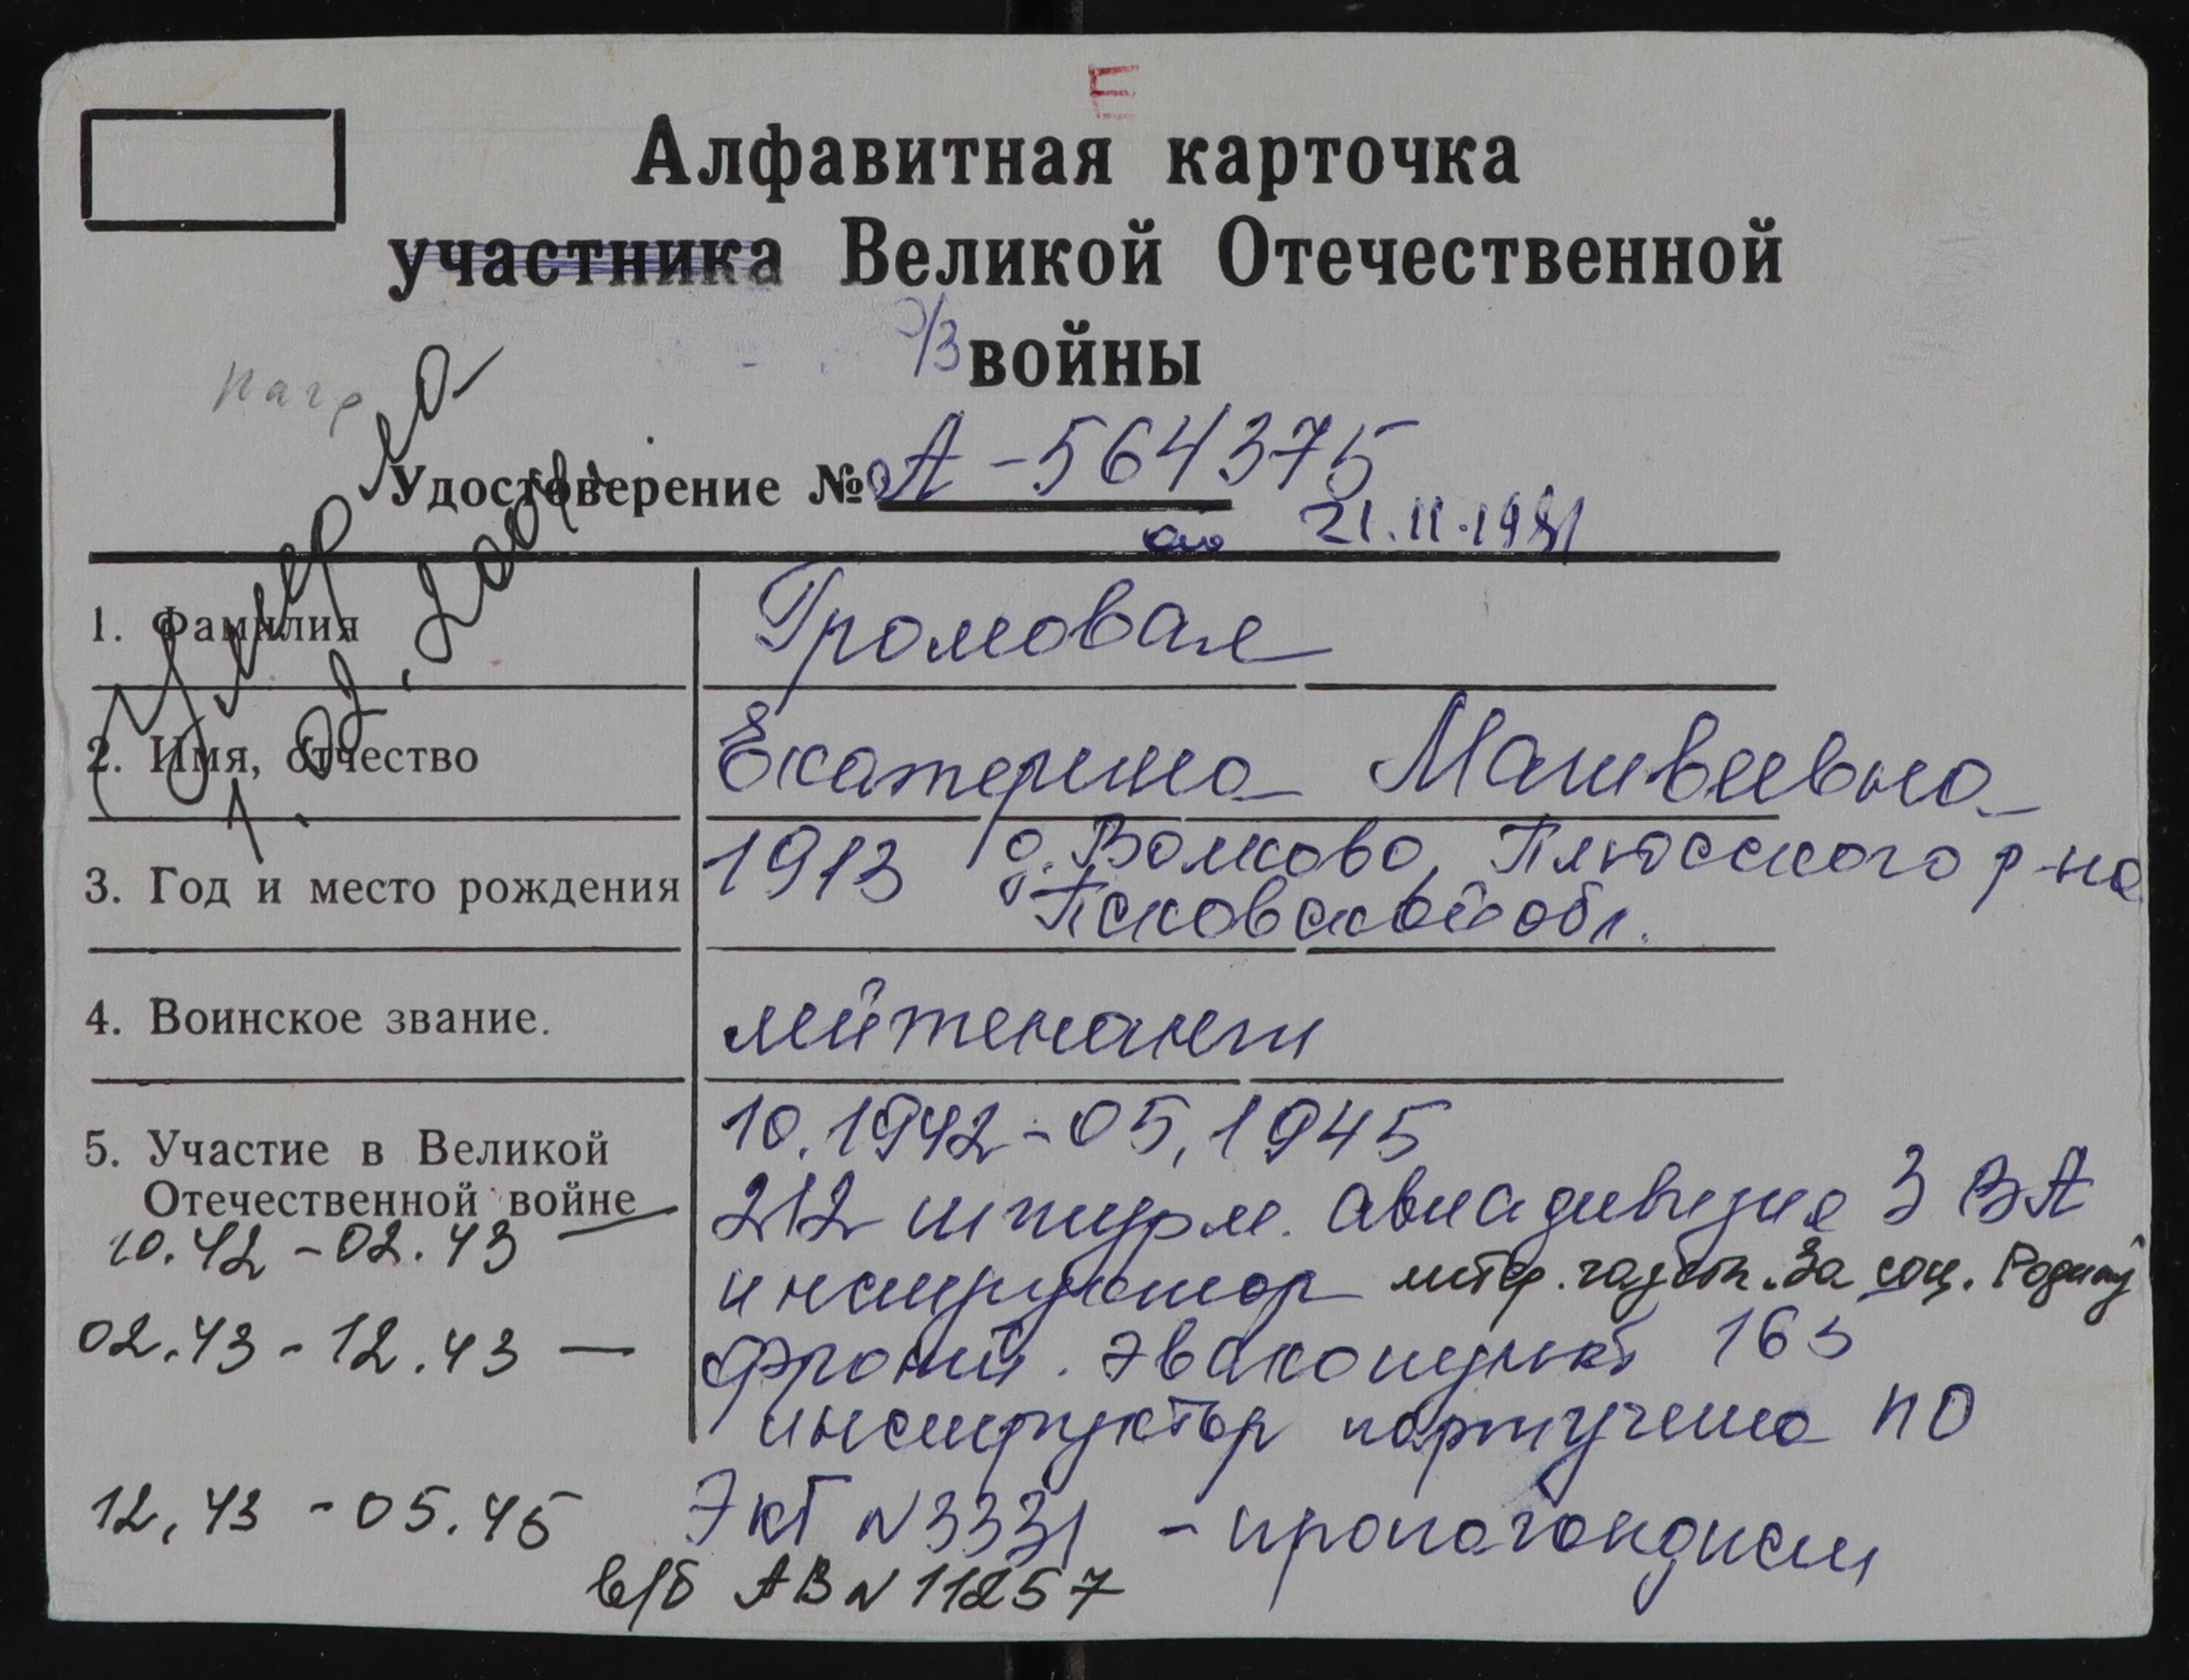 Е
Алфавитная карточка
участника Великой Отечественной
войны
Удостоверение № А-564375
от 21.11.1981
Умерла
1. Фамилия Громовая
2. Имя, отчество Екатерина Матвеевна
3. Год и место рождения 1913 д. Волково, Плюсского р-на
Псковской обл.
4. Воинское звание. лейтенант
5. Участие в Великой 10.1942-05.1945
Отечественной войне 212 штурм. авиадивизия 3 ВА
10.42-02.43 — инструктор литер. газеты. За соц. Родину
02.43-12.43 — фронт. эвакопункт 165
инструктор партучета ПО
12.43-05.45 ЭКГ N 3331 - пропогондист
в/б АВ N 11257